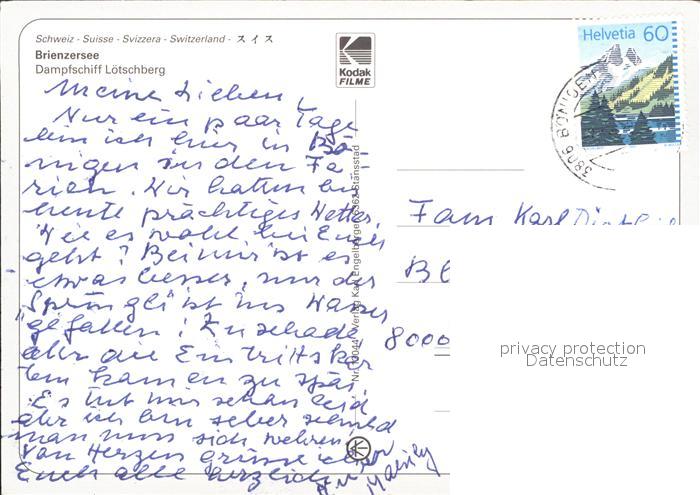 Schweiz - Suisse - Svizzera - Switzerland - スイス
Brienzersee
Dampfschiff Lötschberg
Kodak
FILME
Helvetia 60
3806 BÖNIGEN
Meine Lieben,
Nur ein paar Tage
bin ich hier in Bö-
nigen in den Fe-
rien. Wir hatten bis
heute prächtiges Wetter.
Wie es wohl bei Euch
geht? Bei mir ist es
etwas besser, nur der
"Sprüngli" ist ins Wasser
gefallen! Zu schade
aber die Eintrittskar
ten kamen zu spät.
Es tut mir schon leid
aber ich bin selber schuld
man muss sich wehren!
Von Herzen grüsse ich
Euch alle herzlich
Nr. 10044 Verlag Karl Engelberger 6362 Stansstad
Fam Karl
8000
privacy protection
Datenschutz